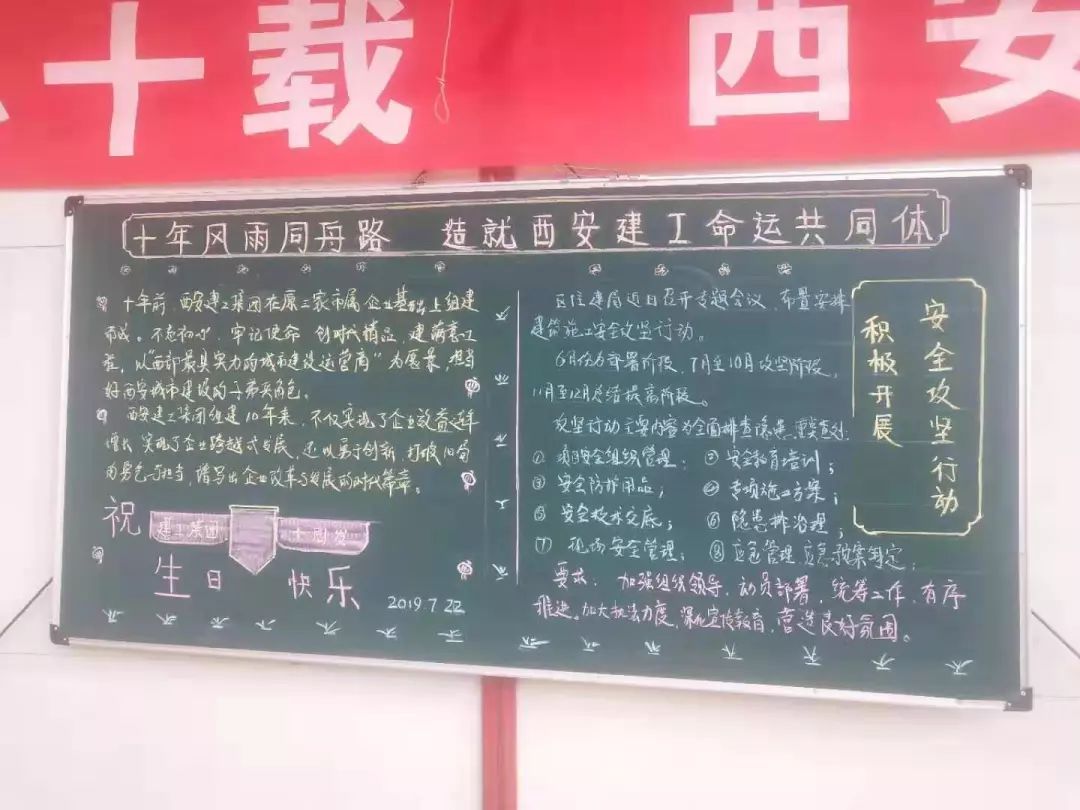 十载 西安
十年风雨同舟路 造就西安建工命运共同体
十年前，西安建工集团在原三家市属企业基础上组建
而成。不忘初心，牢记使命，创时代精品，建
，以“西部最具实力的城市建设运营商”为愿景，担当
好西安城市建设的子弟兵角色。
西安建工集团组建10年来，不仅实现了企业效益逐年
增长，实现了企业跨越式发展，还以勇于创新、打破旧局
的勇气与担当，谱写出企业改革与发展的时代篇章。
祝 建工集团 十周岁
生日 快乐
2019.7.22
区住建局近日召开专题会议，布置安排
建筑施工安全攻坚行动。
6月份为部署阶段，7月至10月攻坚阶段，
11月至12月总结提高阶段。
攻坚行动主要内容为全面排查隐患，重奖查处
① 项目安全组织管理； ② 安全教育培训；
③ 安全防护用品； ④ 专项施工方案；
⑤ 安全技术交底； ⑥ 隐患排治理；
⑦ 现场安全管理； ⑧ 应急管理，应急预案制定；
要求：加强组织领导，动员部署，统筹工作，有序
推进。加大执法力度，深化宣传教育，营造良好氛围。
积极开展
安全攻坚行动